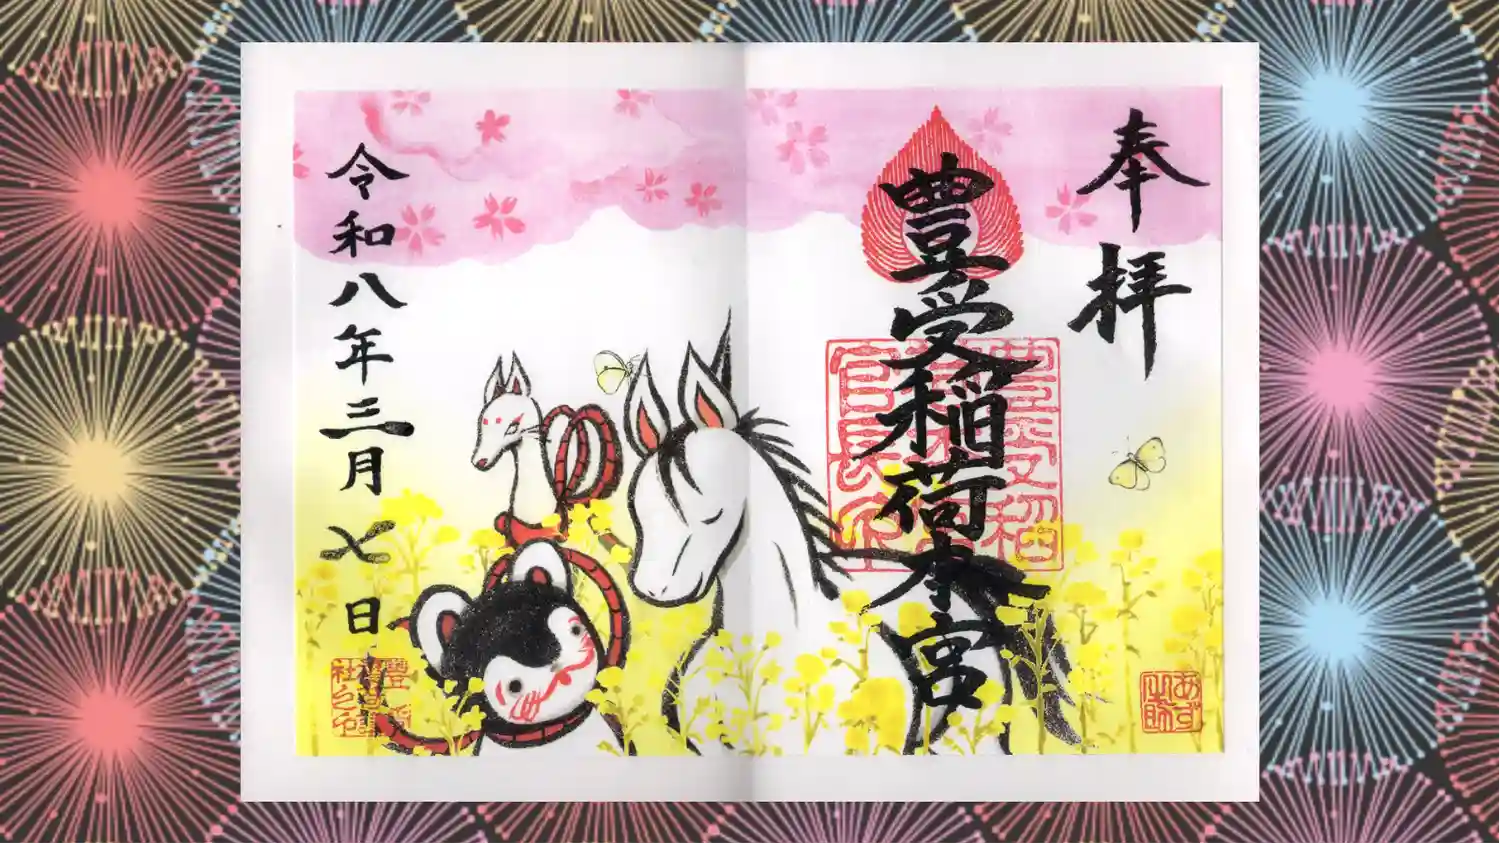 奉拝
豊受稲荷本宮
令和八年三月七日